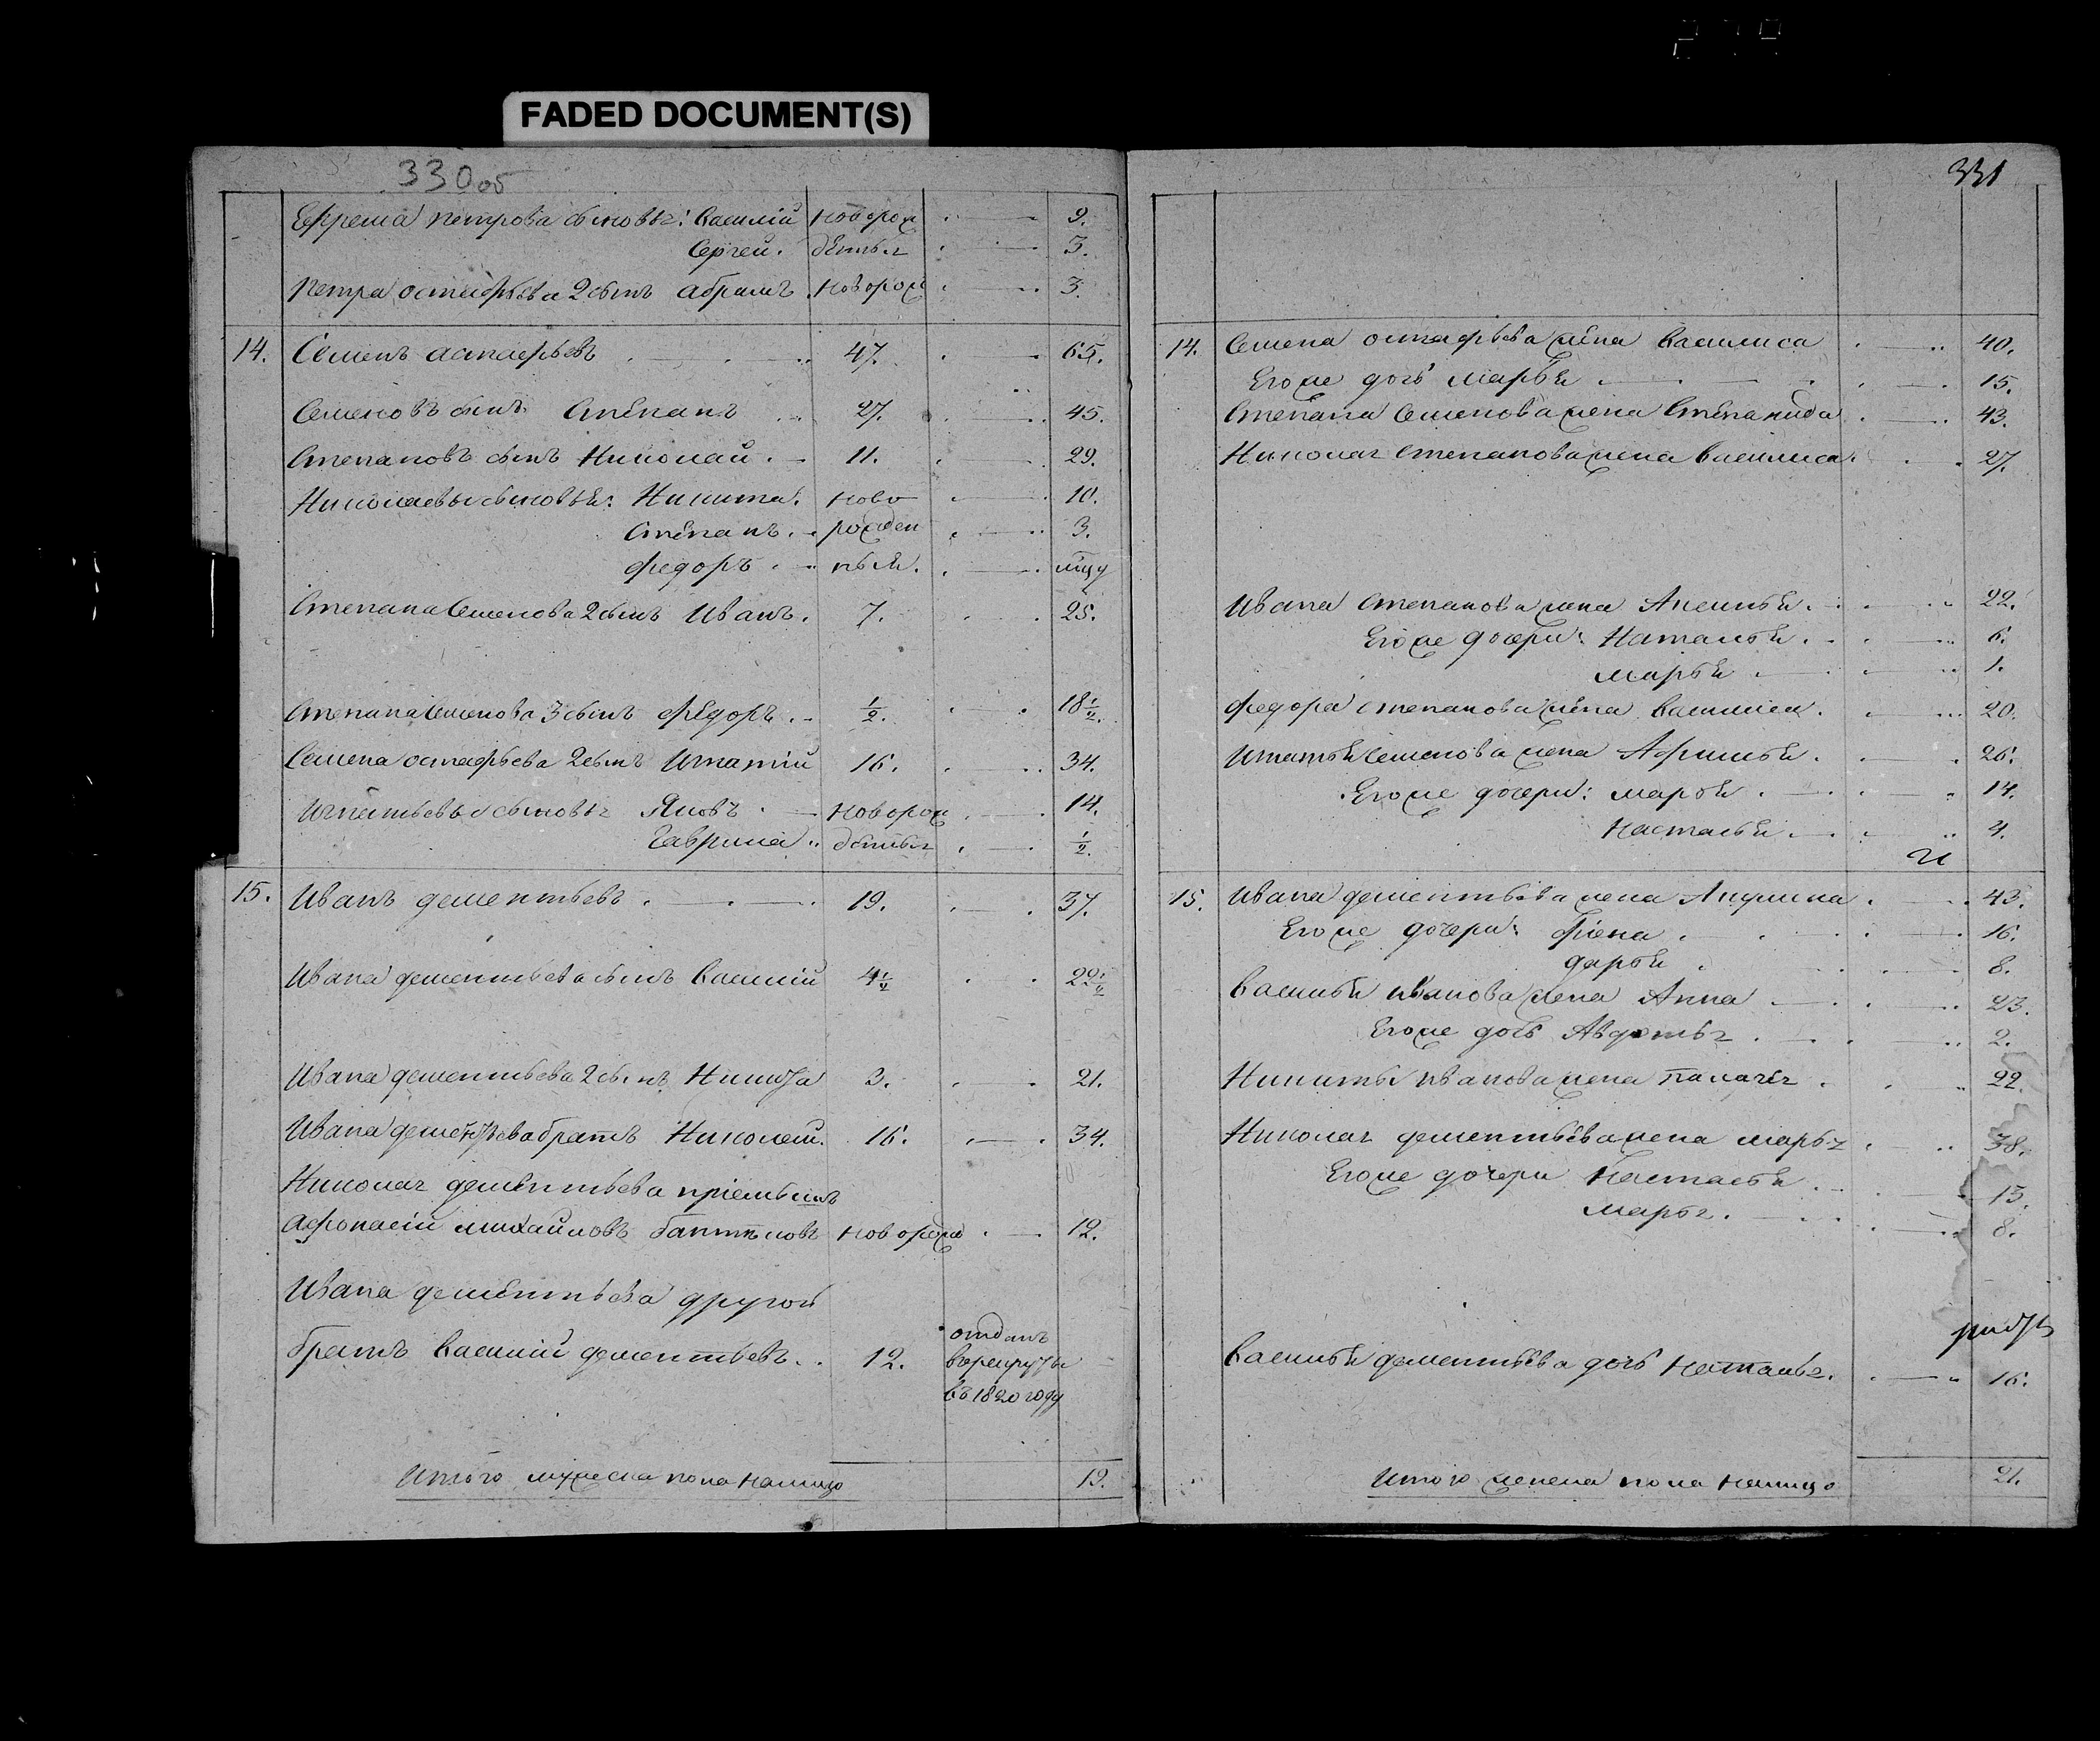 FADED DOCUMENT(S)
330об
Ефрема петрова сыновья: Василий новорож 9.
Сергей. денныя 3.
Петра остафьева 2 сынъ абрамъ. новорож 3.
14. Семенъ астафьевъ 47. 65.
Семеновъ сынъ Степанъ 27. 45.
Степановъ сынъ Николай. 11. 29.
Николаевы сыновья: Никита. ново 10.
Степанъ. рожден 3.
федоръ. ныя.
Степана Семенова 2 сынъ Иванъ. 7. 25.
Степана Семенова 3 сынъ федоръ. 1/2. 18 1/2.
Семена остафьева 2 сынъ Игнатий 16. 34.
Игнатьевы сыновья Яковъ новорож 14.
Гаврила денныя 1/2.
15. Иванъ дементьевъ 19. 37.
Ивана дементьева сынъ Василий 4 1/2 22 1/2
Ивана дементьева 2 сынъ Никита 3. 21.
Ивана дементьева братъ Николай. 16. 34.
Николая дементьева приемышъ
Афонасій михайловъ новорож 12.
Ивана дементьева другой
братъ Василий дементьевъ. 12. отданъ
в рекруты
въ 1820 году
Итого мужеска пола налицо 19.
331
14. Семена остафьева жена Василиса 40.
Его же дочь марья 15.
Степана Семенова жена Степанида 43.
Николая степанова жена Василиса. 27.
Ивана степанова жена Аксинья. 22.
Его же дочери: Наталья. 6.
марья 1.
федора степанова жена Василиса. 20.
Игнатья Семенова жена Афимья. 26.
Его же дочери: марья 14.
Настасья. 4.
15. Ивана дементьева жена Акулина 43.
Его же дочери: Фіона 16.
дарья 8.
Василья иванова жена Анна 23.
Его же дочь Авдотья 2.
Никиты иванова жена палагея 22.
Николая дементьева жена марья 38.
Его же дочери Настасья 15.
марья. 8.
Василья дементьева дочь Наталья. 16.
Итого женска пола налицо 21.